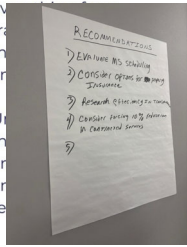 RECOMMENDATIONS
1) EVALUATE MS Scheduling
2) Consider options for paying
Insurance
3) Research efficiency in
4) Consider forcing 10% reduction
in contracted services
5)